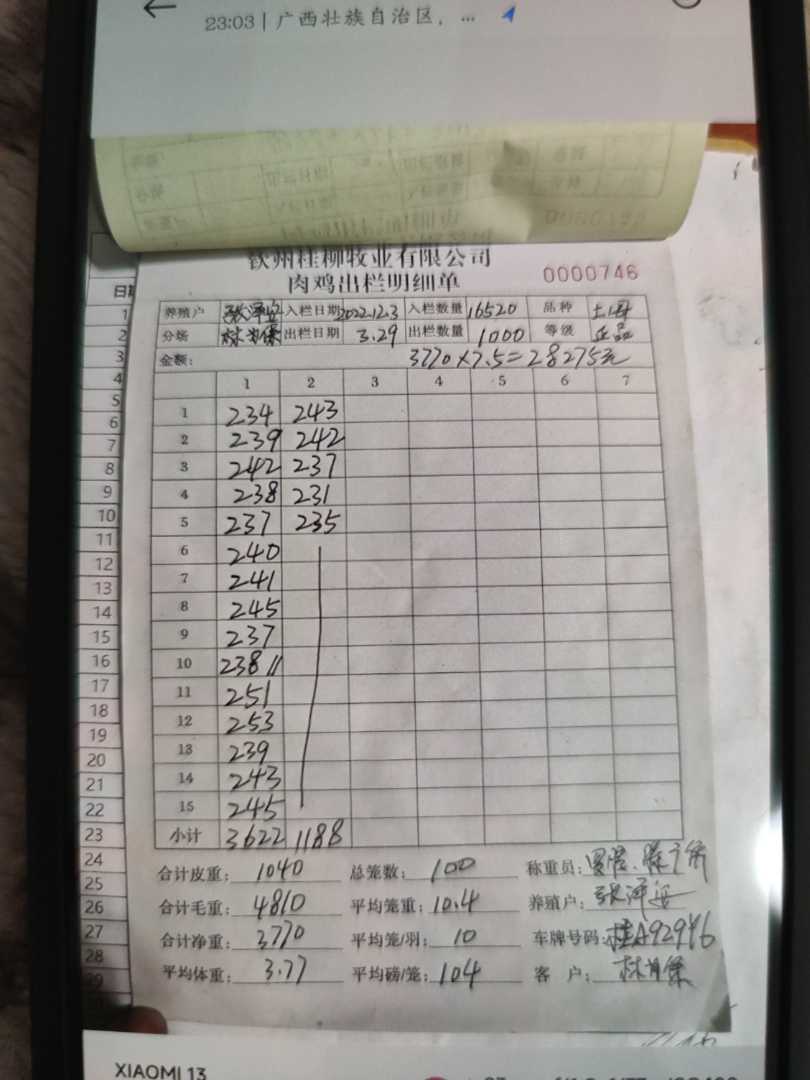 23:03 | 广西壮族自治区, ...
钦州桂柳牧业有限公司
肉鸡出栏明细单 0000746
养殖户 张泽安 入栏日期 2022.12.3 入栏数量 16520 品种
分场 出栏日期 3.29 出栏数量 1000 等级 正品
金额: 3770×7.5=28275元
1 2 3 4 5 6 7
1 234 243
2 239 242
3 242 237
4 238 231
5 237 235
6 240
7 241
8 245
9 237
10 238 //
11 251
12 253
13 239
14 243
15 245
小计 3622 1188
合计皮重: 1040 总笼数: 100 称重员:
合计毛重: 4810 平均笼重: 10.4 养殖户: 张泽安
合计净重: 3770 平均笼/羽: 10 车牌号码: 桂A929Y6
平均体重: 3.77 平均磅/笼: 104 客户:
日期
1
2
3
4
5
6
7
8
9
10
11
12
13
14
15
16
17
18
19
20
21
22
23
24
25
26
27
28
29
XIAOMI 13